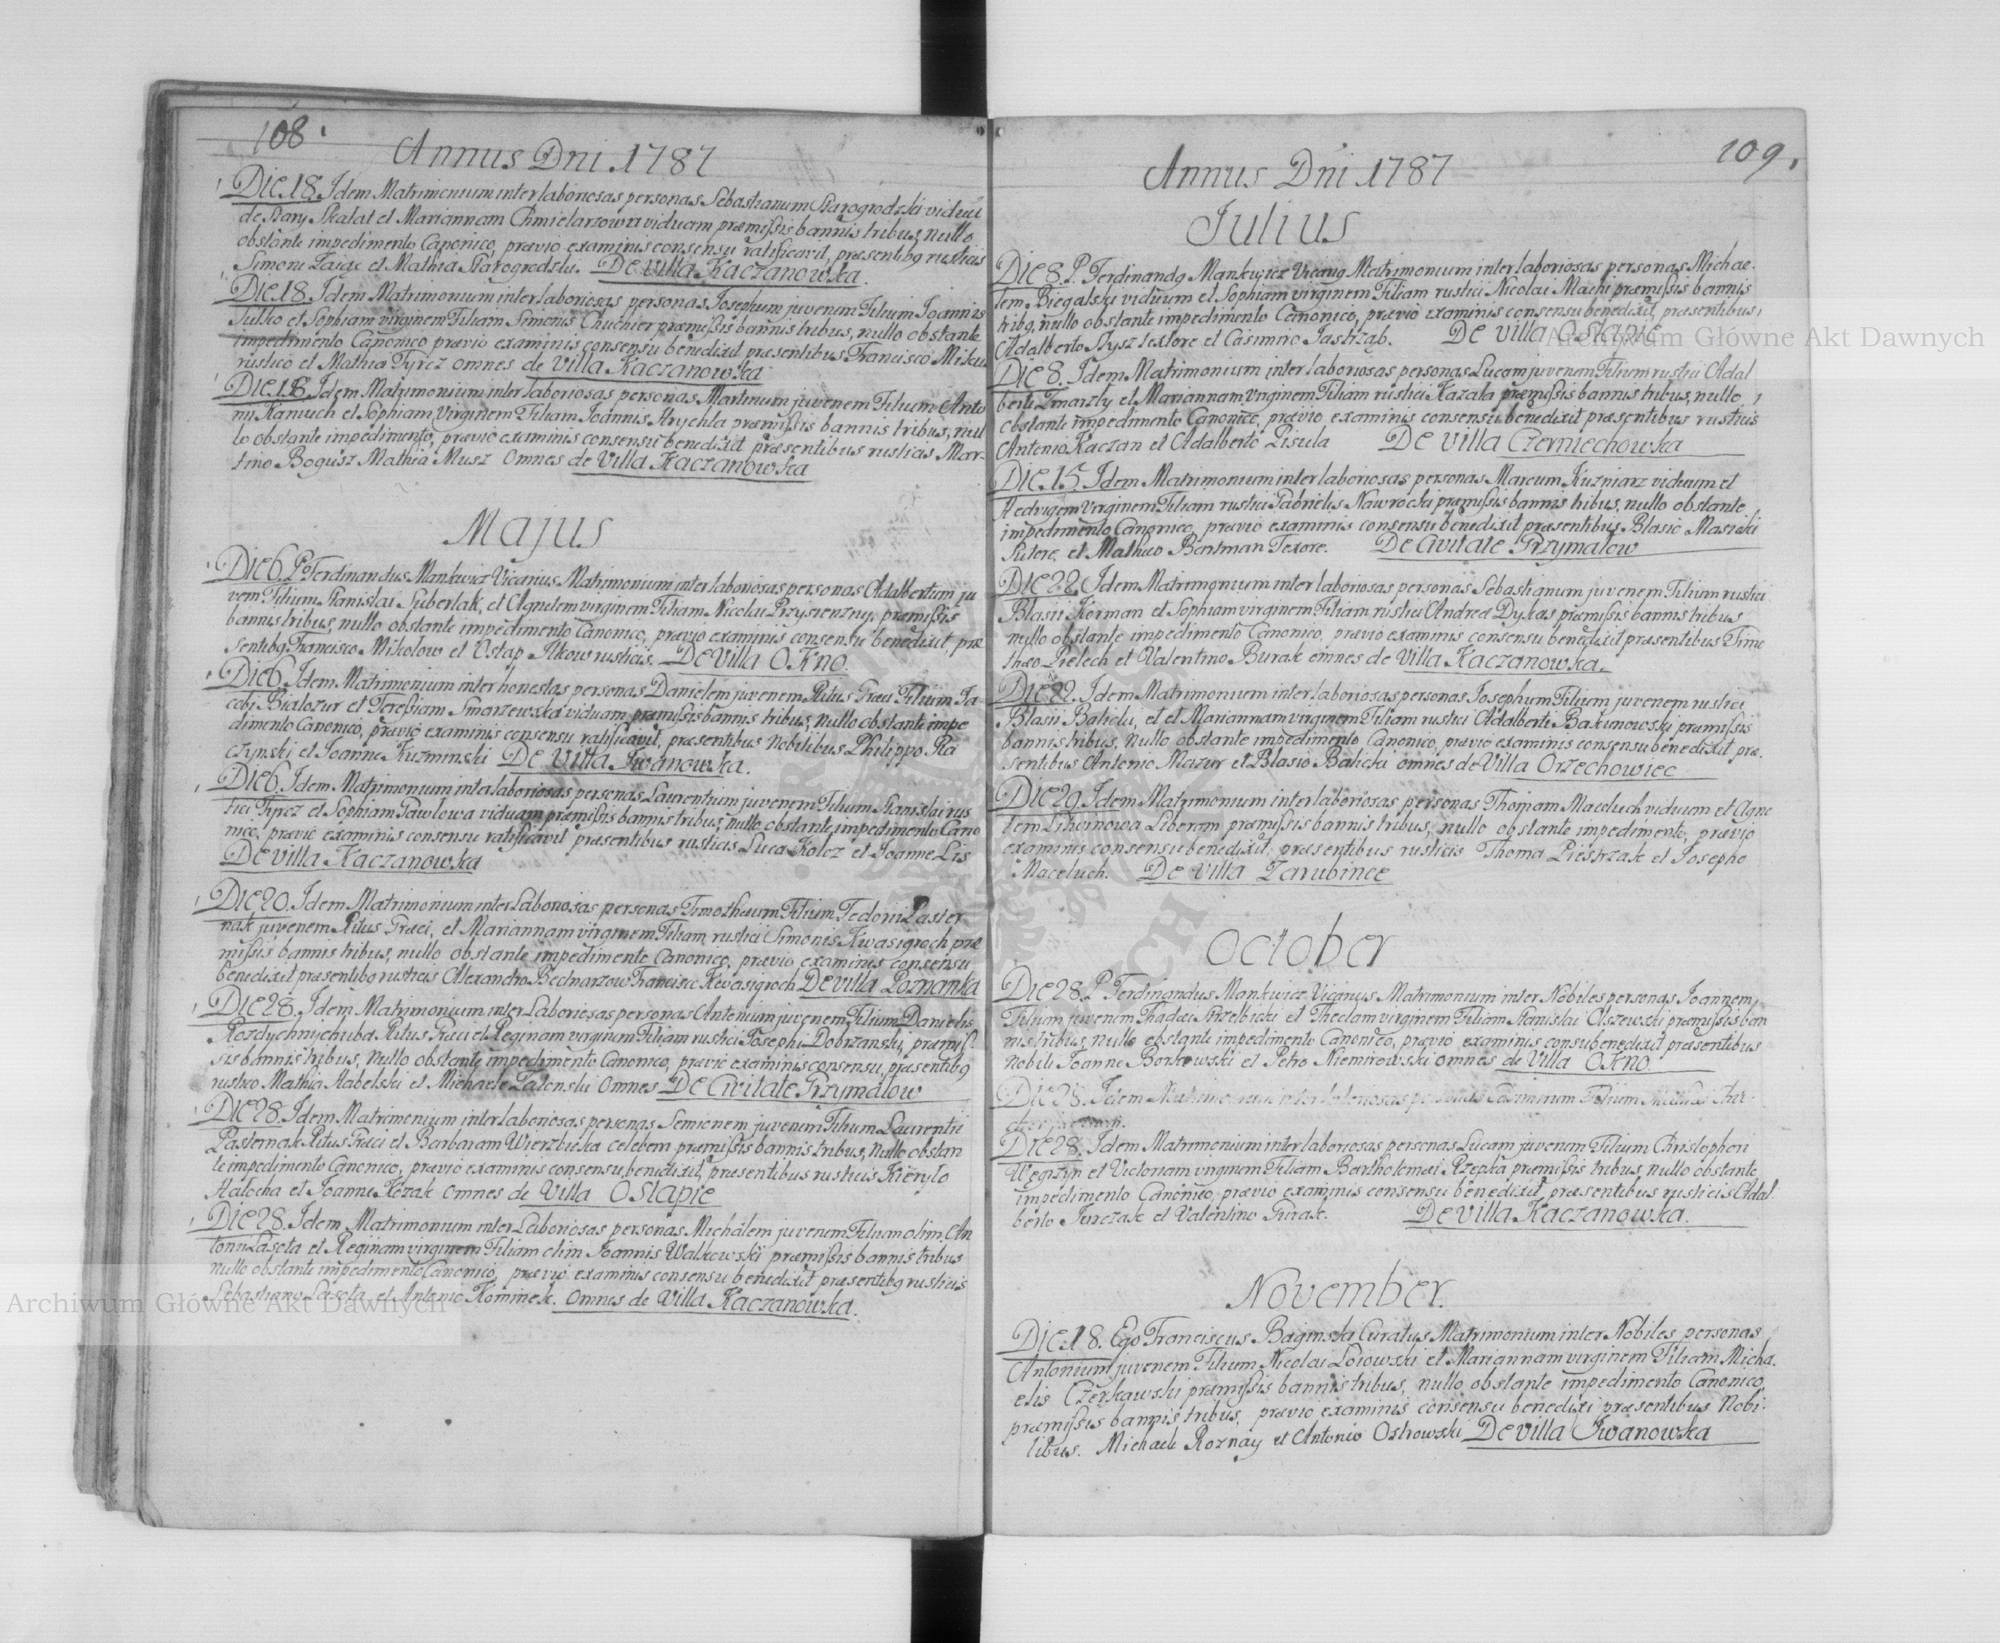 108.
Annus Dni 1787
Die 18. Idem Matrimonium inter laboriosas personas Sebastianum Starogrodzki viduū
de Stary Skalat et Mariannam Chmielarzowa viduam præmissis bannis tribus, nullo
obstante impedimento Canonico, prævio examinis consensu ratificavit, præsentibq rusticis
Simone Zaiąc et Mathia Starogrodzki. De Villa Kaczanowka.
Die 18. Idem Matrimonium inter laboriosas personas Josephum juvenem Filium Joannis
et Sophiam virginem Filiam Simonis Chuchier præmissis bannis tribus, nullo obstante
impedimento Canonico prævio examinis consensu benedixit præsentibus Francisco Miku
rustico et Mathia Tyrcz omnes de Villa Kaczanowka
Die 18. Idem Matrimonium inter laboriosas personas Martinum juvenem Filium Anto
ny et Sophiam Virginem Filiam Joannis Hrychla præmissis bannis tribus, nul
lo obstante impedimento, prævio examinis consensu benedixit præsentibus rusticis Mar-
tino Bogusz Mathia Musz omnes de Villa Kaczanowka
Majus
Die 6. P. Ferdinandus Mankwicz Vicarius Matrimonium inter laboriosas personas Adalbertum ju
vem Filium Stanislai Suberlak, et Agnetem virginem Filiam Nicolai Przysienzny, præmissis
bannis tribus, nullo obstante impedimento Canonico, prævio examinis consensu benedixit, præ
sentibq Francisco Mikolow et Ostap rusticis. De Villa OKno.
Die 6. Idem Matrimonium inter honestas personas Danielem juvenem Ritus Græci Filium Ja
cobi Bialozur et Teressiam Smarzewska viduam præmissis bannis tribus, nullo obstante impe
dimento Canonico, prævio examinis consensu ratificavit, præsentibus Nobilibus Philippo Ra
czynski et Joanne Kuzminski De Villa Iwanowka.
Die 6. Idem Matrimonium inter laboriosas personas Laurentium juvenem Filium Stanislai rus
tici Tyrcz et Sophiam Pawlowa viduam præmissis bannis tribus, nullo obstante impedimento Cano
nico, prævio examinis consensu ratificavit præsentibus rusticis Luca Kolcz et Joanne Lis
De Villa Kaczanowka
Die 20. Idem Matrimonium inter Laboriosas personas Timotheum Filium Fedori Paster
nak juvenem Ritus Græci, et Mariannam virginem Filiam rustici Simonis Kwasigroch præ
missis bannis tribus, nullo obstante impedimento Canonico, prævio examinis consensu
benedixit præsentibo rusticis Alexandro Bednarzow Francisco Kwasigroch De Villa Poznanka
Die 28. Idem Matrimonium inter Laboriosas personas Antonium juvenem Filium Danielis
Rozdychnychuba Ritus Græci et Reginam virginem Filiam rustici Josephi Dobrzanski, præmis
sis bannis tribus, nullo obstante impedimento Canonico, prævio examinis consensu, præsentibq
rustico Mathia Habelski et Michaele Zalenski omnes De Civitate Grzymalow
Die 28. Idem Matrimonium inter laboriosas personas Semionem juvenem Filium Laurentii
Pasternak Ritus Græci et Barbaram Wierzbicka celebem præmissis bannis tribus, nullo obstan
te impedimento Canonico, prævio examinis consensu benedixit, præsentibus rusticis Kieryło
Hałocha et Joanne Kozak omnes de Villa Ostapie
Die 28. Idem Matrimonium inter Laboriosas personas Michälem juvenem Filium olim An
tonii Lasota et Reginam virginem Filiam olim Joannis Walkowski præmissis bannis tribus
nullo obstante impedimento Canonico prævio examinis consensu benedixit præsentibq rusticis
Sebastiano Lasota et Antonio Kominek. omnes de Villa Kaczanowka.
109.
Annus Dni 1787
Julius
Die 8. P. Ferdinandq Mankwicz Vicariq Matrimonium inter laboriosas personas Michae-
lem Biegalski viduum et Sophiam virginem Filiam rustici Nicolai Machi præmissis bannis
tribq, nullo obstante impedimento Canonico, prævio examinis consensu benedixit, præsentibus
Adalberto Hysz textore et Casimiro Jastrząb. De Villa Ostapie
Die 8. Idem Matrimonium inter laboriosas personas Lucam juvenem Filium rustici Adal
berti Zmarzly et Mariannam virginem Filiam rustici Kazala præmissis bannis tribus, nullo
obstante impedimento Canonico, prævio examinis consensu benedixit præsentibus rusticis
Antonio Kaczan et Adalberto Pisula De Villa Czerniechowka
Die 15. Idem Matrimonium inter laboriosas personas Marcum Kuzniarz viduum et
Hedvigem virginem Filiam rustici Gabrielis Nawrocki præmissis bannis tribus, nullo obstante
impedimento Canonico, prævio examinis consensu benedixit præsentibus Blasio Masicki
Sutore, et Matheo Bortman Texore. De Civitate Grzymałow
Die 22. Idem Matrimonium inter laboriosas personas Sebastianum juvenem Filium rustici
Blasii Korman et Sophiam virginem Filiam rustici Andreæ Dykas præmissis bannis tribus
nullo obstante impedimento Canonico, prævio examinis consensu benedixit præsentibus Timo
thæo Pielech et Valentino Burak omnes de Villa Kaczanowka.
Die 22. Idem Matrimonium inter laboriosas personas Josephum Filium juvenem rustici
Blasii Balicki, et et Mariannam virginem Filiam rustici Adalberti Bakunowski præmissis
bannis tribus, nullo obstante impedimento Canonico, prævio examinis consensu benedixit præ-
sentibus Antonio Mazur et Blasio Balicki omnes de Villa Orzechowiec
Die 29. Idem Matrimonium inter laboriosas personas Thomam Maceluch viduum et Agne
tem Litwinowa Liberam præmissis bannis tribus, nullo obstante impedimento, prævio
examinis consensu benedixit, præsentibus rusticis Thoma Piestrzak et Josepho
Maceluch. De Villa Zarubince
October
Die 28. P. Ferdinandus Mankwicz Vicarius Matrimonium inter Nobiles personas Joannem
Filium juvenem Thadæi Strzelbicki et Theclam virginem Filiam Stanislai Olszewski præmissis ban
nis tribus, nullo obstante impedimento Canonico, prævio examinis consu benedixit præsentibus
Nobili Joanne Borkowski et Petro Niemirowski omnes de Villa OKNO.
Die 28. Idem Matrimonium inter laboriosas personas Casimirum Filium
Die 28. Idem Matrimonium inter laboriosas personas Lucam juvenem Filium Christophori
Węgrzyn et Victoriam virginem Filiam Bartholomæi Rzepka præmissis tribus, nullo obstante
impedimento Canonico, prævio examinis consensu benedixit, præsentibus rusticis Adal-
berto Jurczak et Valentino Gurak. De Villa Kaczanowka.
November.
Die 18. Ego Franciscus Baginski Curatus Matrimonium inter Nobiles personas
Antonium juvenem Filium Nicolai Łoiowski et Mariannam virginem Filiam Micha-
elis Czerkawski præmissis bannis tribus, nullo obstante impedimento Canonico,
præmissis bannis tribus, prævio examinis consensu benedixi præsentibus Nobi-
libus. Michaele Roznay et Antonio Ostrowski De Villa Iwanowka
Archiwum Główne Akt Dawnych
Archiwum Główne Akt Dawnych